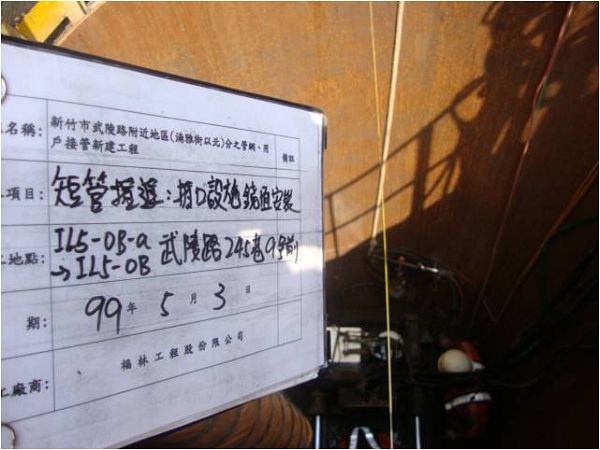 名稱：新竹市武陵路附近地區(湳雅街以北)分支管網、用
戶接管新建工程
備註
項目：短管推進：坑口設施鏡面安裝
地點：IL5-0B-a 武陵路245巷9号前
→IL5-0B
期：99年5月3日
工廠商：福林工程股份有限公司